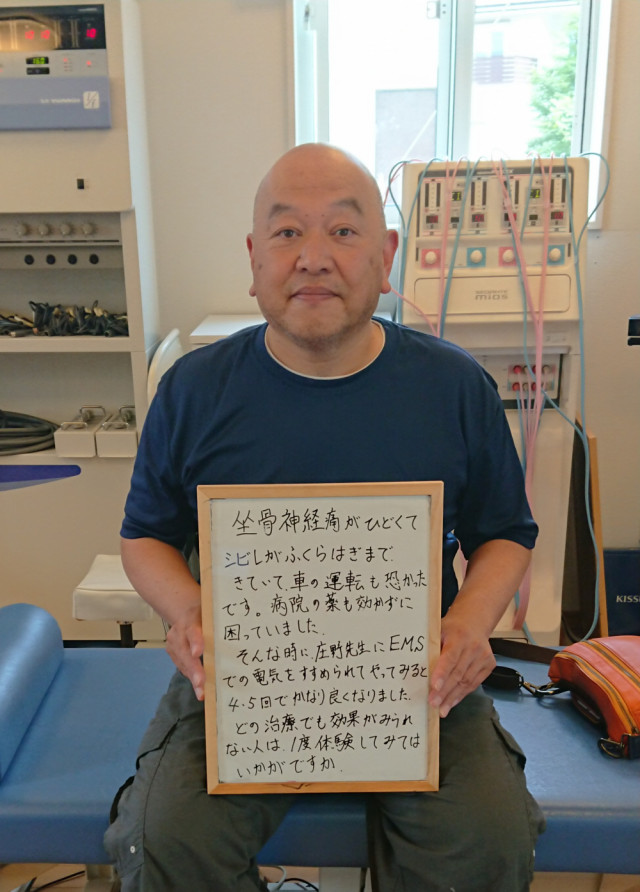 坐骨神経痛がひどくて
シビレがふくらはぎまで
きていて、車の運転も恐かった
です。病院の薬も効かずに
困っていました。
そんな時に、庄野先生にEMS
での電気をすすめられてやってみると
4.5回でかなり良くなりました。
どの治療でも効果がみられ
ない人は、1度体験してみては
いかがですか。
mios
KISS